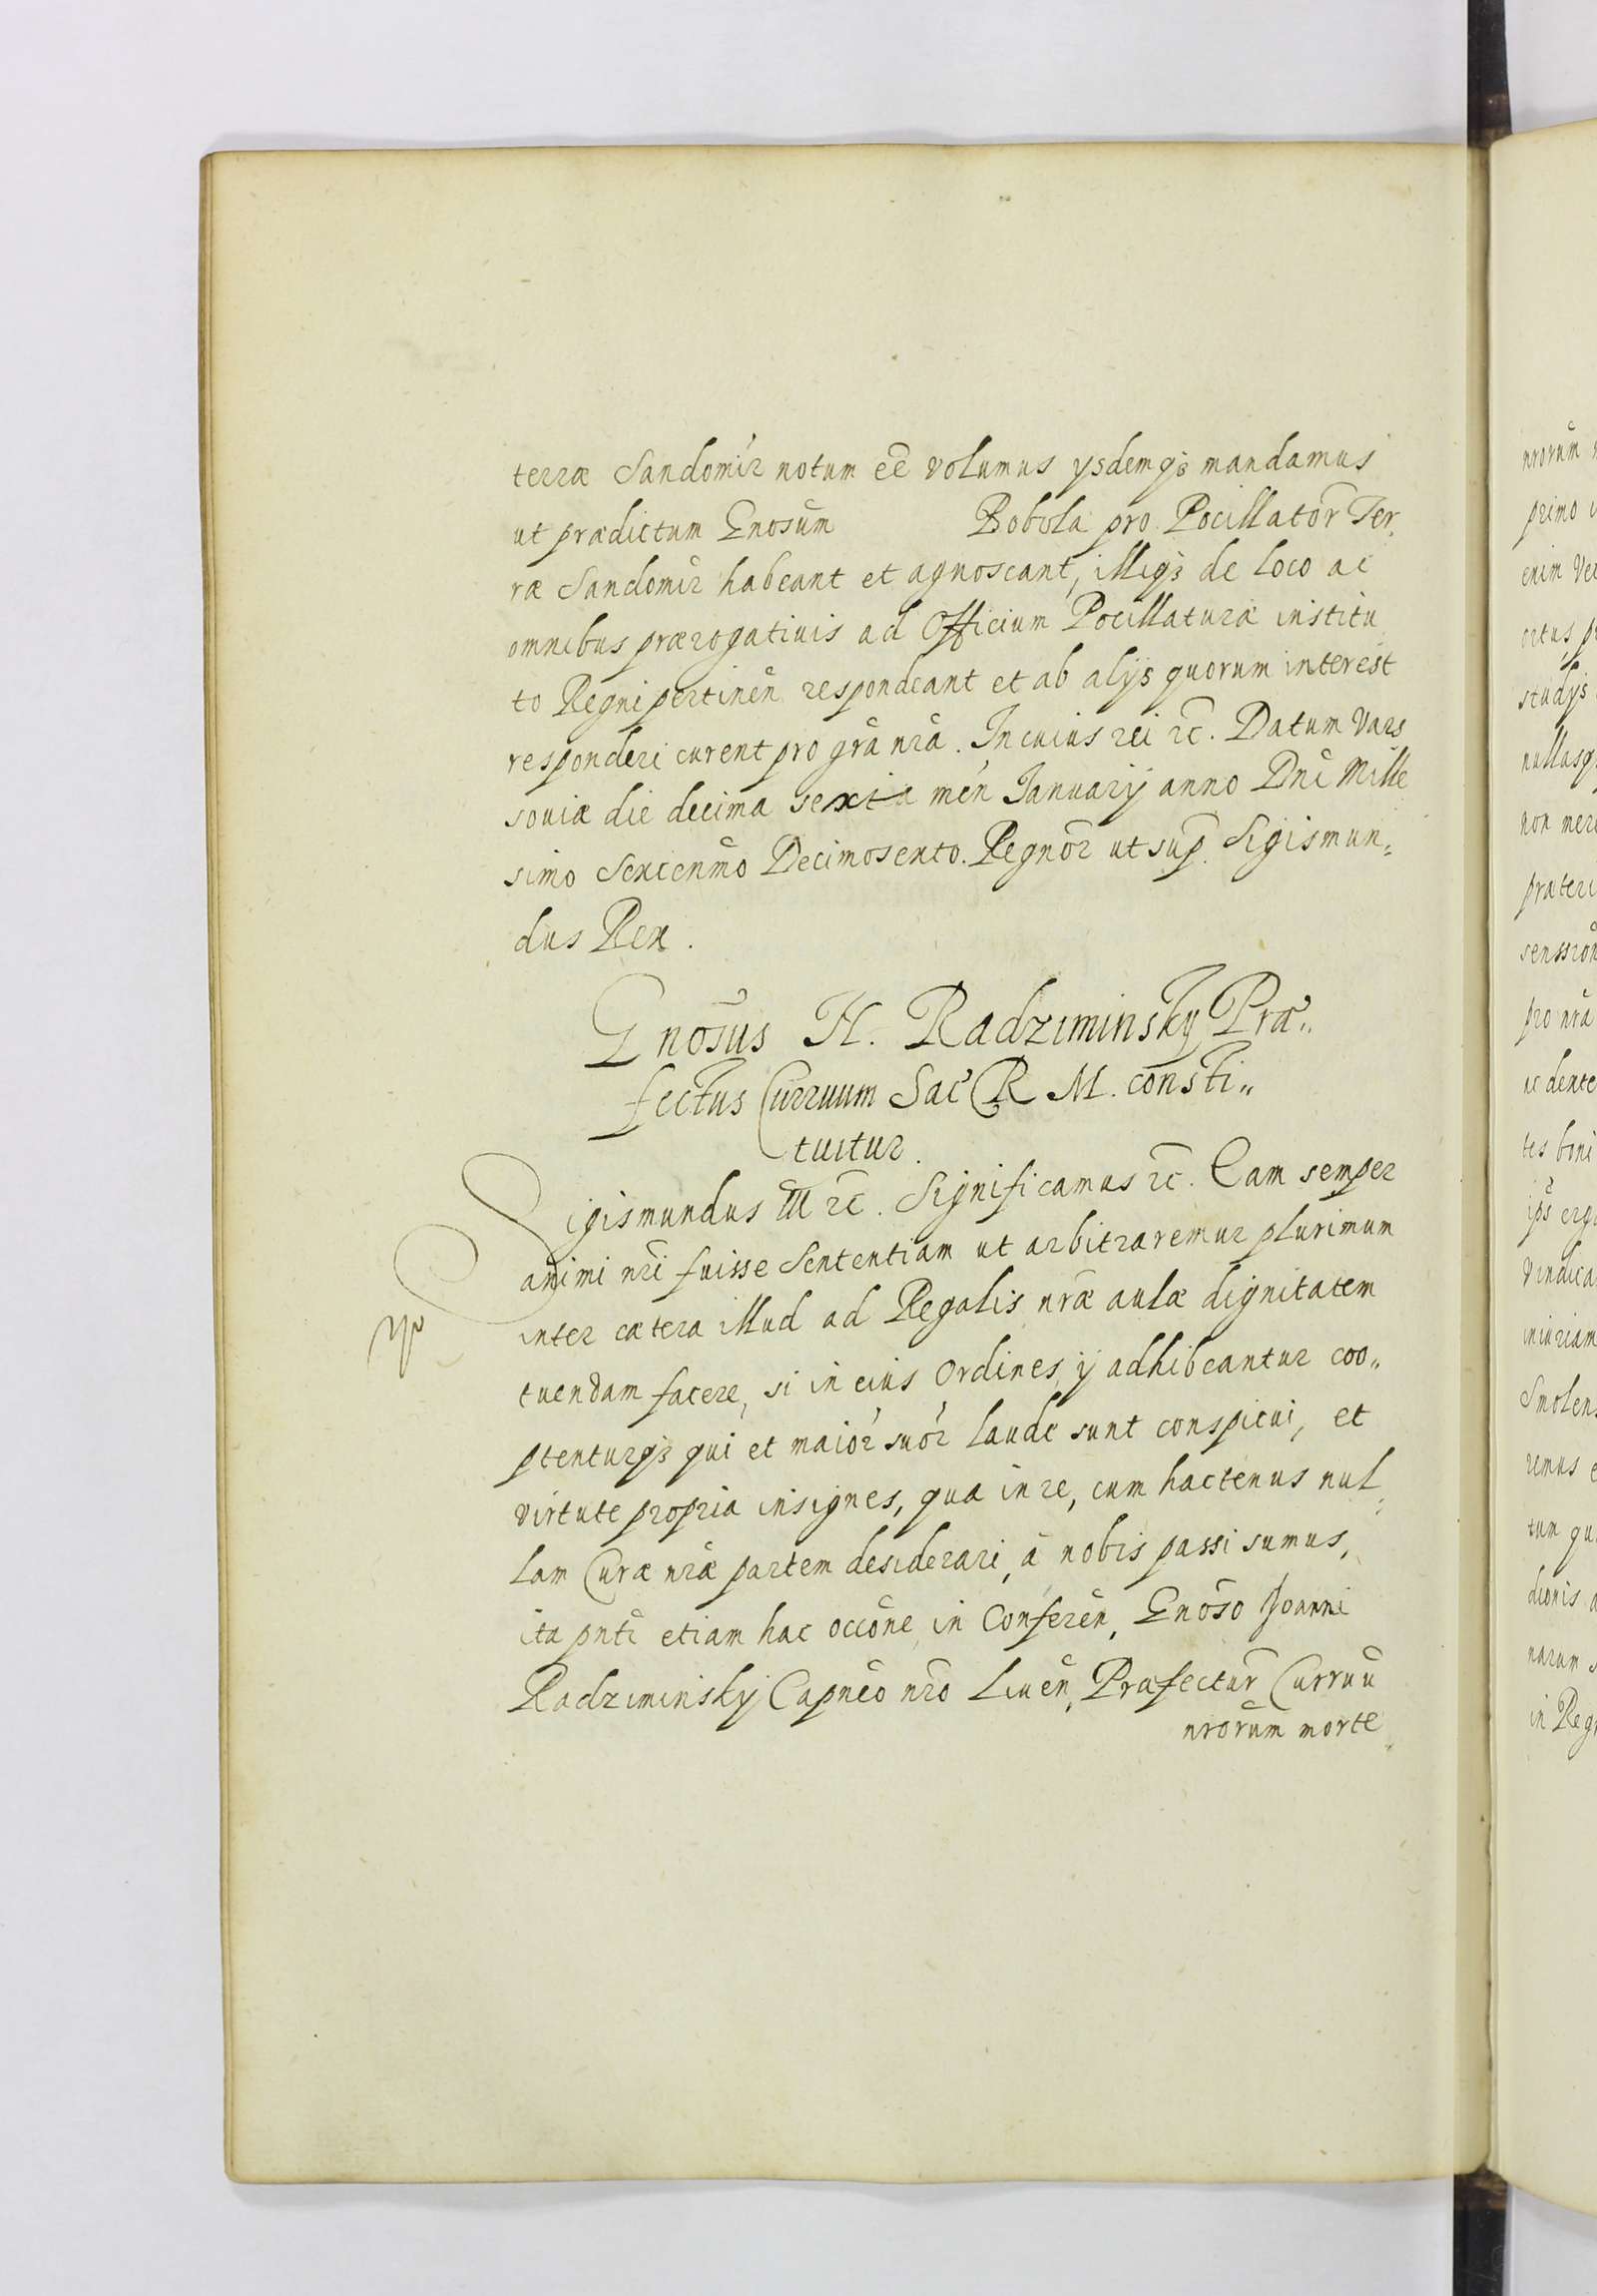 terræ Sandomir notum eē volumus ysdemqȝ mandamus
ut prædictum Gnosūm Bobola pro Pocillatōr Ter,
ræ Sandomir habeant et agnoscant, illiqȝ de loco ac
omnibus prærogativis ad Officium Pocillaturæ institu
to Regni pertinēn respondeant et ab alijs quorum interest
responderi curent pro grā nrā. In cuius rei rc̄. Datum Vars
soviæ die decima sexta mēn Ianuarij anno Dnī Mille
simo Sexcenmō Decimosexto. Regnōr ut sup̄. Sigismun„
dus Rex.
Gnosūs H. Radziminsky Præ„
fectus Curruum Sac R M. consti„
tuitur.
Sigismundus III rc̄. Significamus rc̄. Eam semper
animi nrī fuisse Sententiam ut arbitraremur plurimum
inter cætera illud ad Regalis nrǣ aulæ dignitatem
tuendam facere, si in eius Ordines, ij adhibeantur coo„
ptenturqȝ qui et maiōr suōr laude sunt conspicui, et
virtute propria insignes, qua in re, cum hactenus nul„
lam Curæ nrǣ partem desiderari, à nobis passi sumus,
ita pntī etiam hac occōne, in Conferēn, Gnōso Joanni
Radziminskij Capnēo nrō Livēn, Præfectur̄ Curruū
nrorūm morte

nrorūm
primo
enim
ortus,
studijs
nullasq
non
præteri
pro nrā
tes boni
Vindica
iniuriam
Smolens
remus
tum
dionis
narum
in Reg